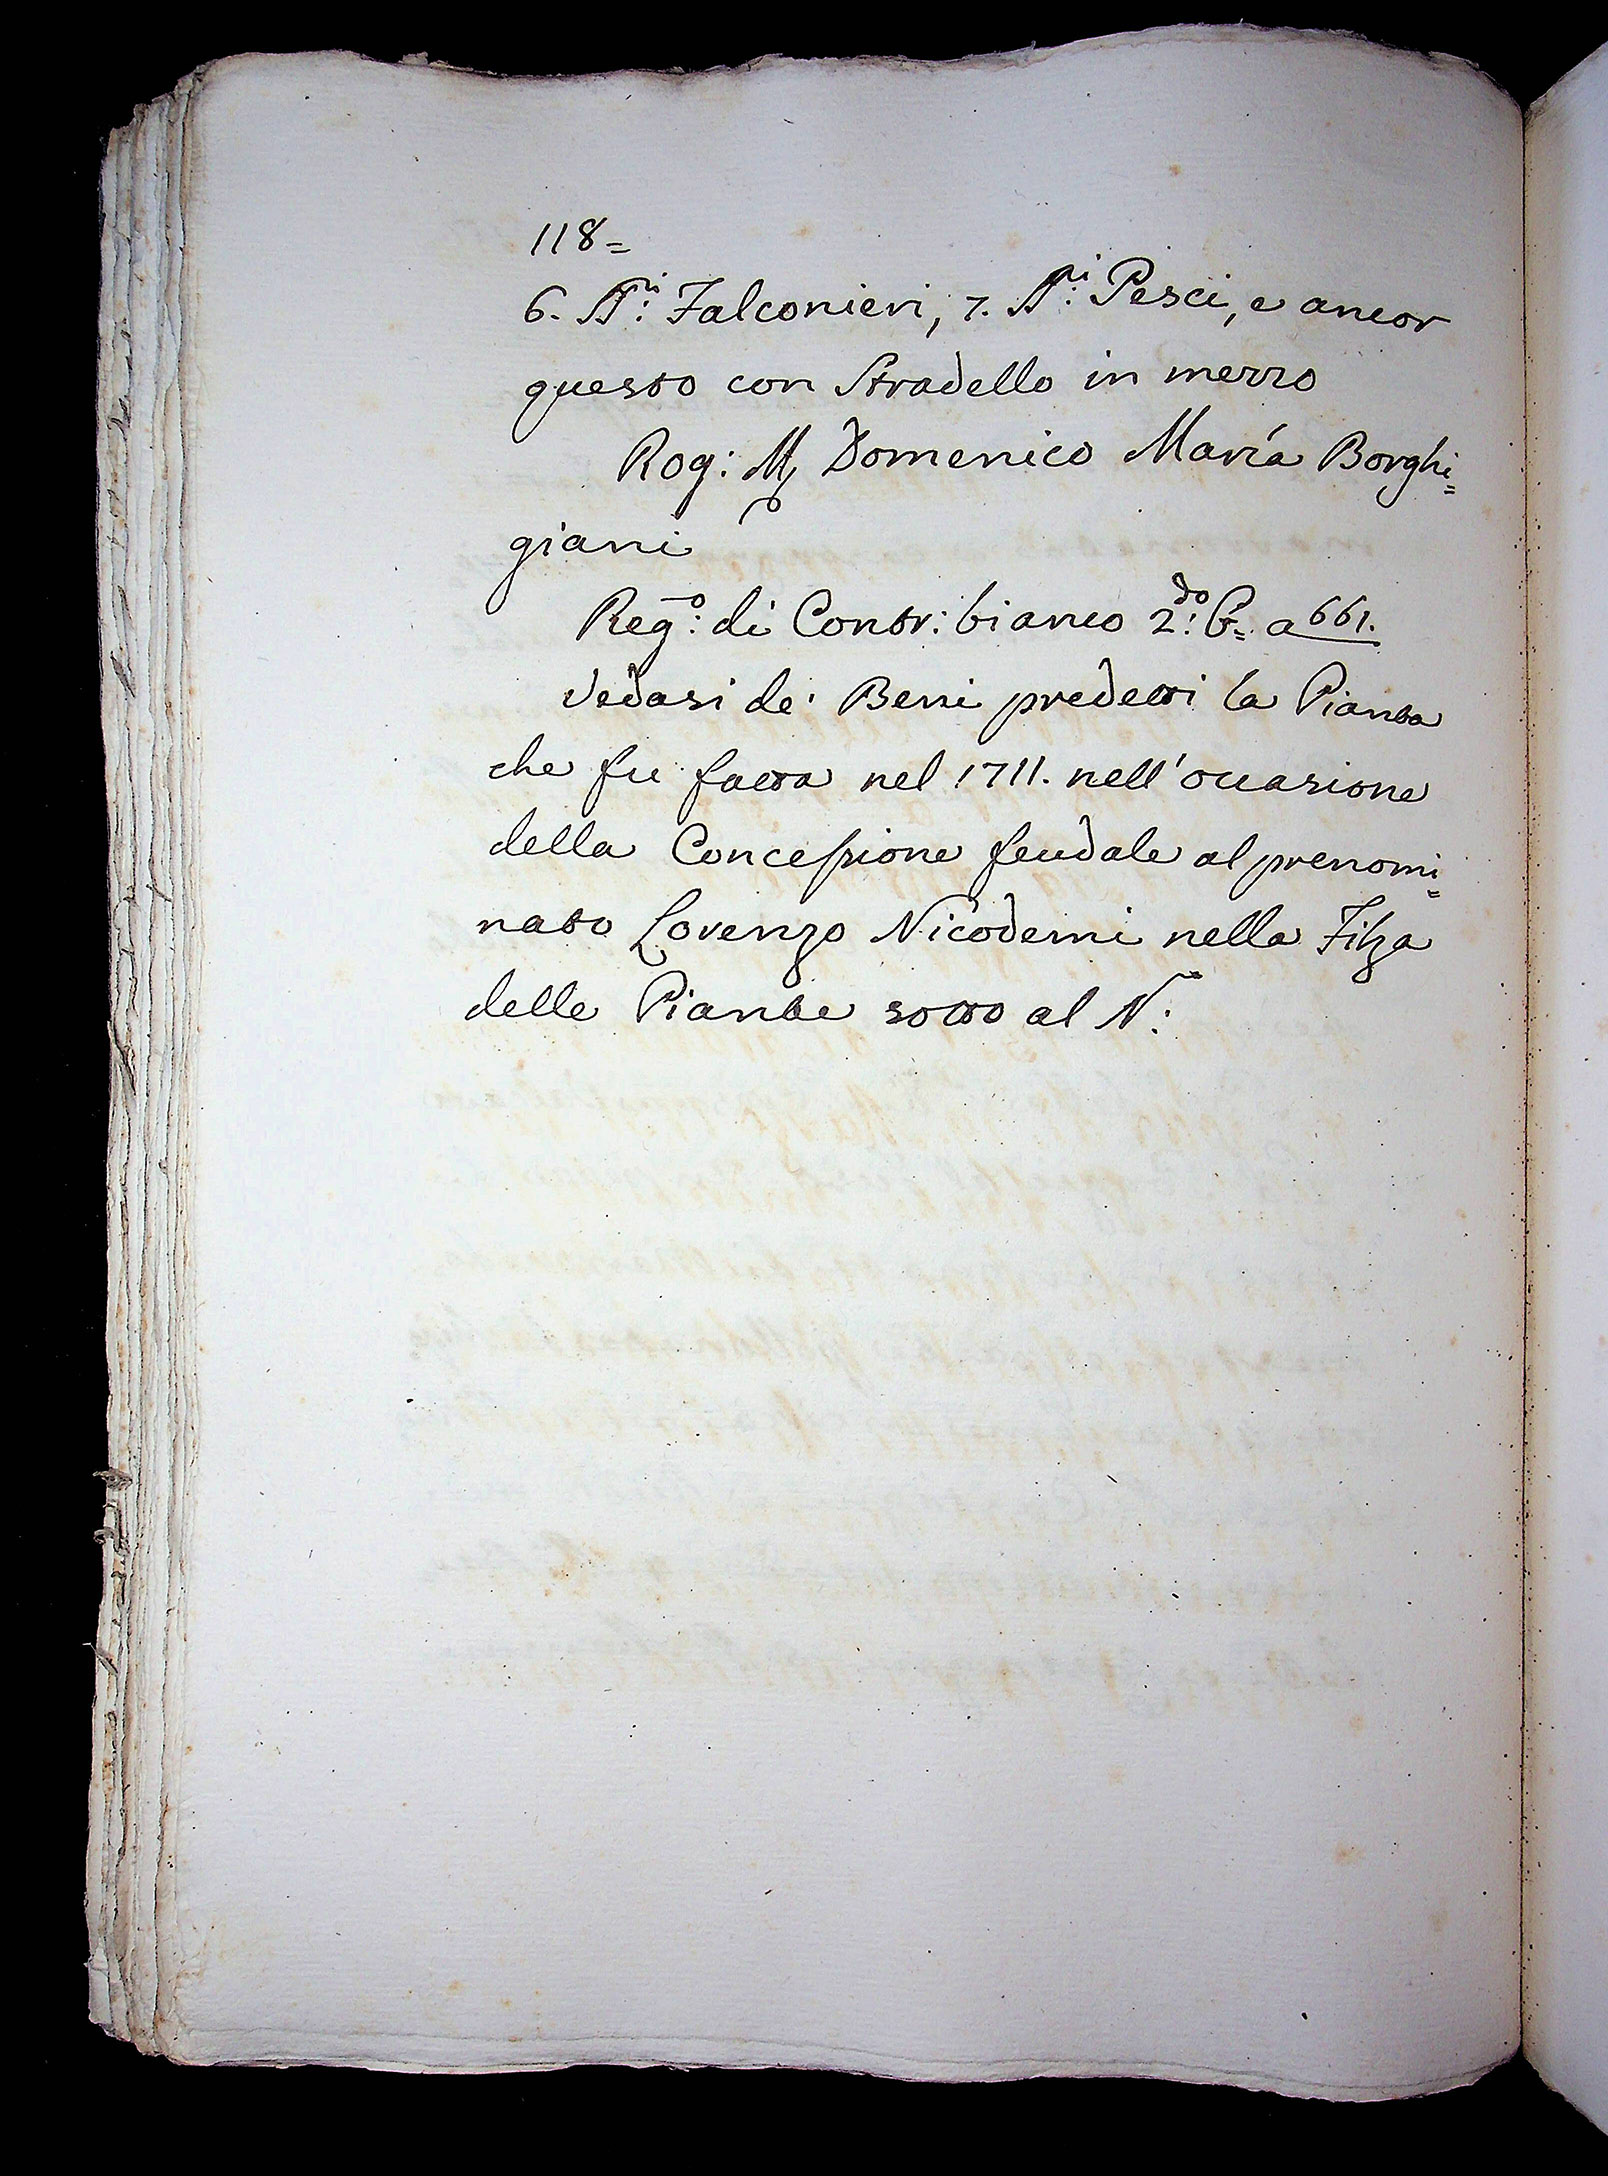 118=
6. SS:ri Falconieri, 7. SS:ri Pesci, e ancor
questo con Stradello in mezzo
Rog: Mr Domenico Maria Borghi=
giani
Reg:o di Contr: bianco 2:do G= a 661.
Vedasi de' Beni predetti la Pianta
che fu fatta nel 1711. nell'occasione
della Concessione feudale al prenomi=
nato Lorenzo Nicodemi nella Filza
delle Piante sotto al N: